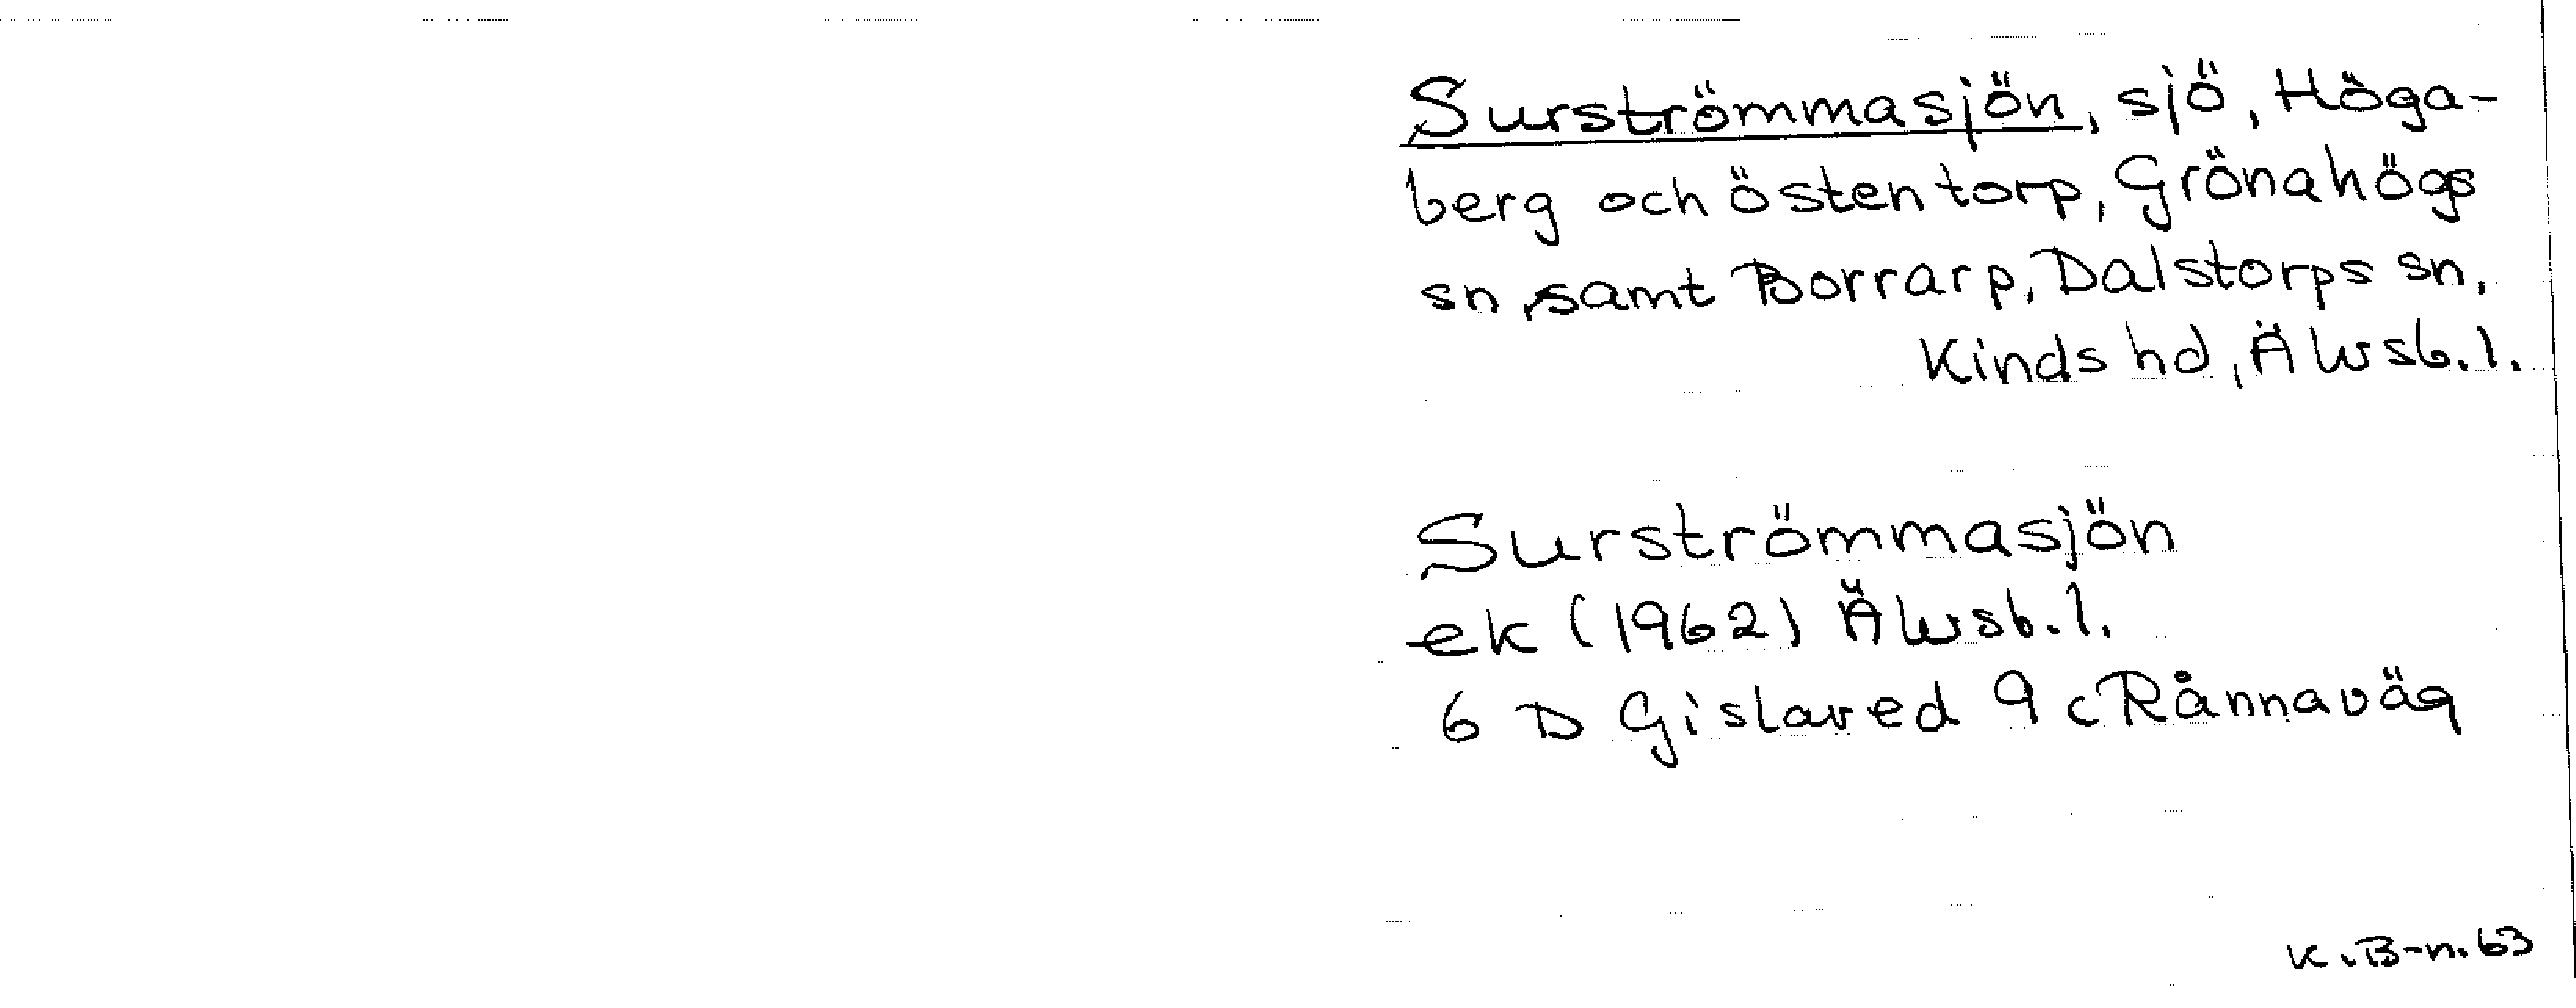 Surströmmasjön, sjö, Höga-
berg och östentorp, Grönahögs
sn, samt Borrarp, Dalstorps sn,
Kinds hd, Älvsb. l.
Surströmmasjön
ek (1962) Älvsb. l.
6 D Gislaved 9 c Rånnaväg
K. B-n. 63